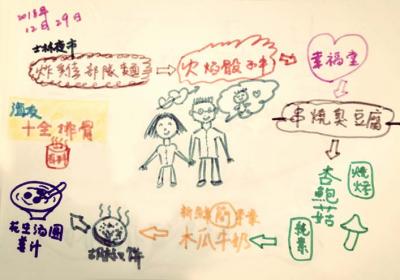 2018年
12月29日
士林夜市
炸彈部隊麵
火焰骰子牛
幸福堂
串燒臭豆腐
燒烤
杏鮑菇
純素
新鮮
木瓜牛奶
胡椒餅
花生湯圓
薑汁
海友
十全排骨